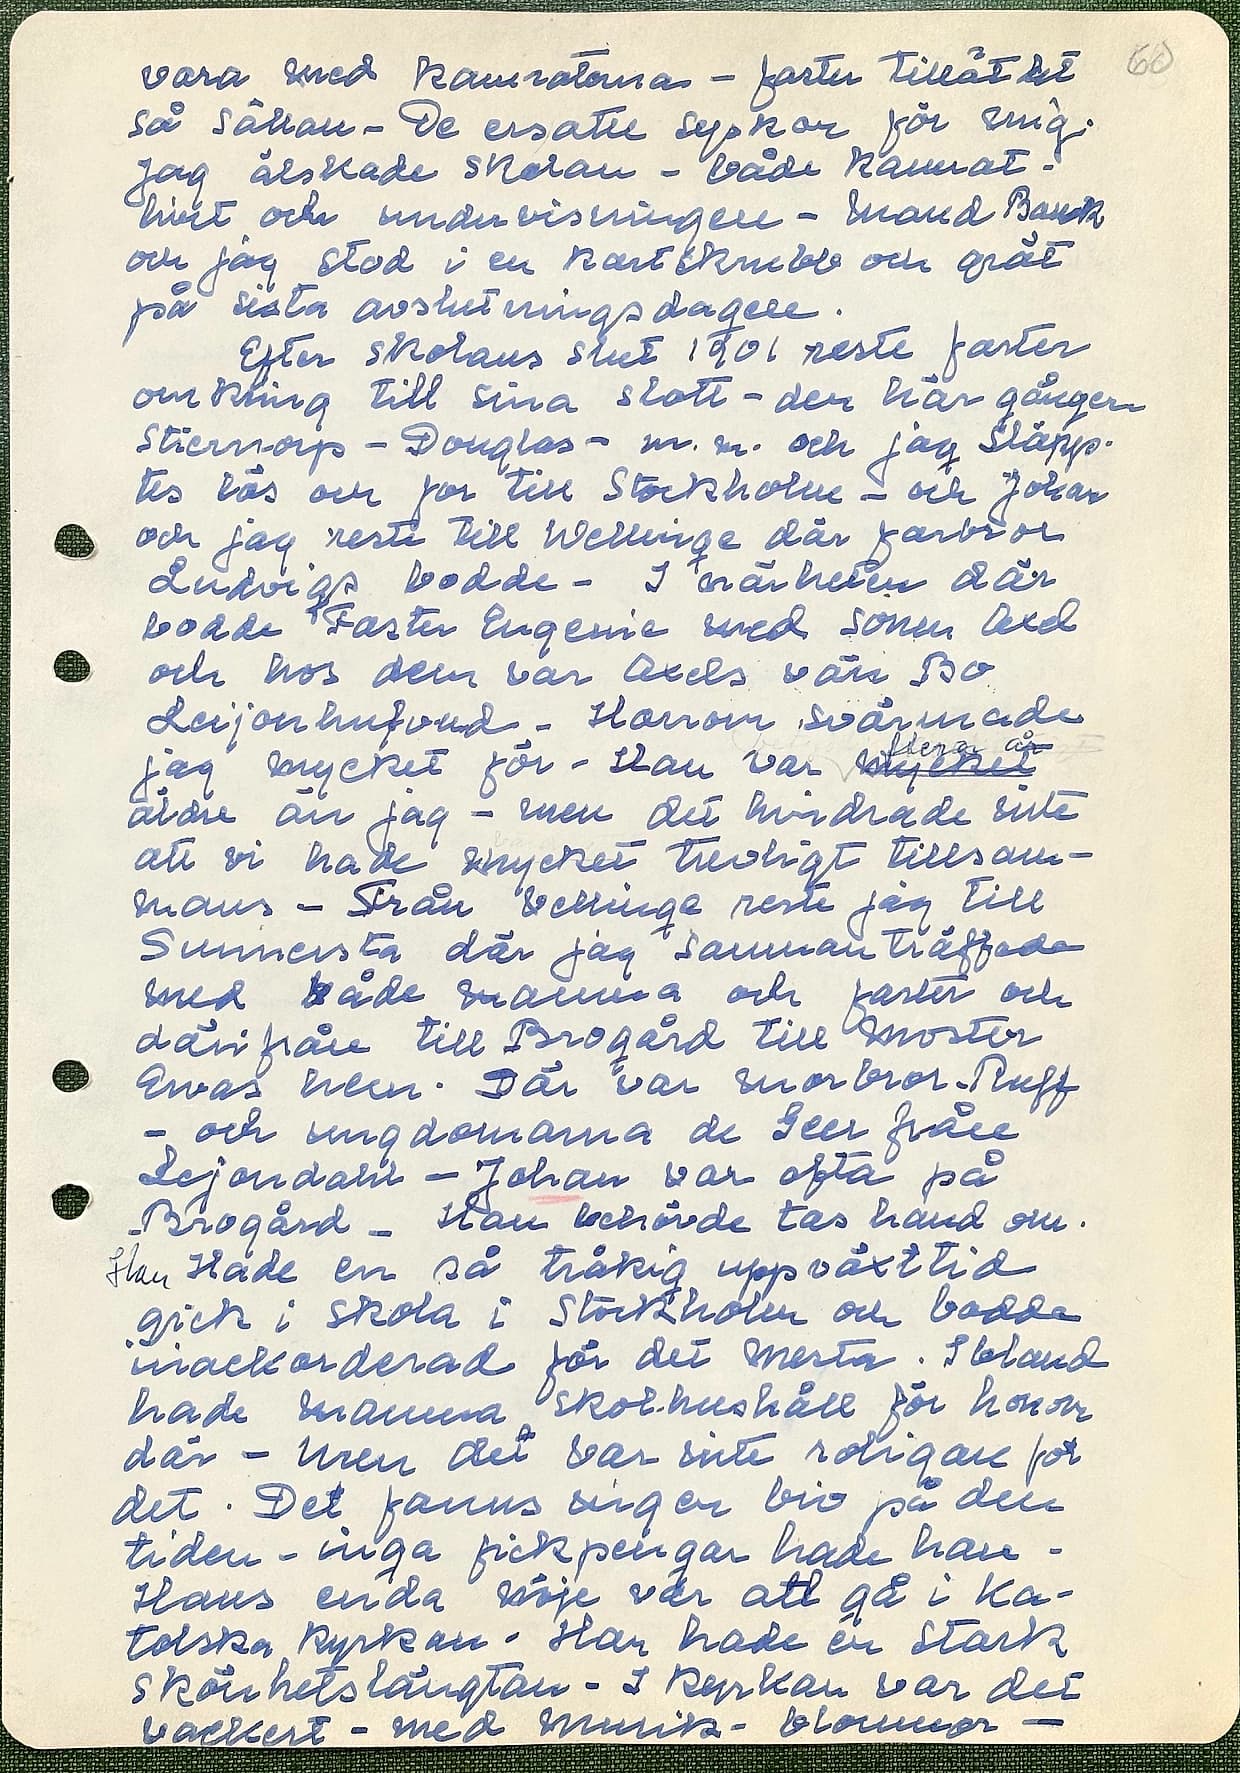 60
vara med kamraterna – faster tillät det
så sällan – De ersatte syskon för mig.
Jag älskade skolan – både kamrat-
livet och undervisningen – Maud Banck
och jag stod i en kartskrubb och grät
på sista avslutningsdagen.
Efter skolans slut 1901 reste faster
omkring till sina slott – den här gången
Stiernorp – Douglas – m.m. och jag släpp-
tes lös och for till Stockholm – och Johan
och jag reste till Wellinge där farbror
Ludvigs bodde – I närheten där
bodde Faster Eugenie med sonen Axel
och hos dem var Axels vän Bo
Leijonhufvud – Honom svärmade
flera år
jag mycket för – Han var mycket
äldre än jag – men det hindrade inte
att vi hade mycket trevligt tillsam-
mans – Från Vellinge reste jag till
Sunnersta där jag sammanträffade
med både mamma och faster och
därifrån till Brogård till moster
Ewas hem. Där var morbror Ruff
– och ungdomarna de Geer från
Lejondahl – Johan var ofta på
Brogård – Han behövde tas hand om.
Han Hade en så tråkig uppväxttid
gick i skola i Stockholm och bodde
inackorderad för det mesta. Ibland
hade mamma skolhushåll för honom
där – men det var inte roligare för
det. Det fanns ingen bio på den
tiden – inga fickpengar hade han –
Hans enda nöje var att gå i ka-
tolska kyrkan. Han hade en stark
skönhetslängtan – I kyrkan var det
vackert – med musik – blommor –